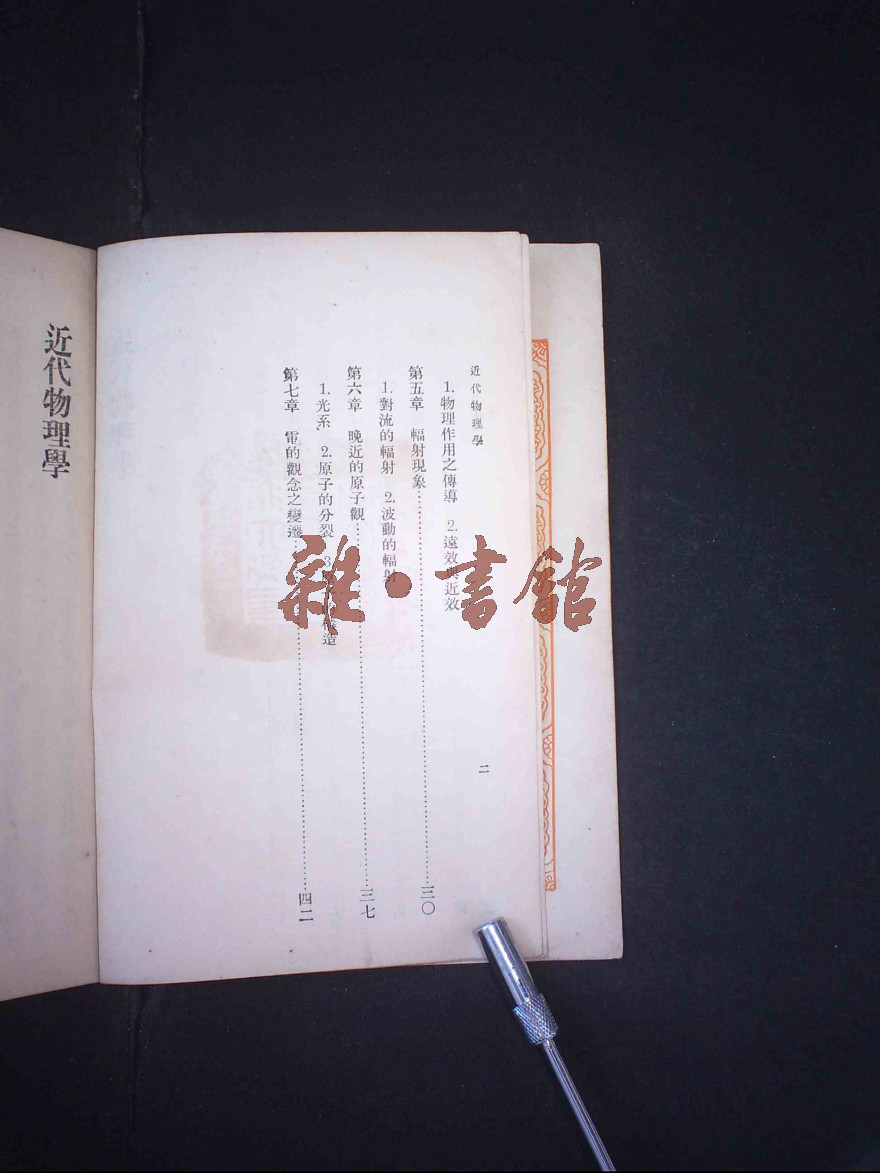 近代物理學
二
1. 物理作用之傳導　2. 遠效與近效
第五章　輻射現象……三〇
1. 對流的輻射　2. 波動的輻射
第六章　晚近的原子觀……三七
1. 光系　2. 原子的分裂　3.造
第七章　電的觀念之變遷……四二
近代物理學
雜·書館